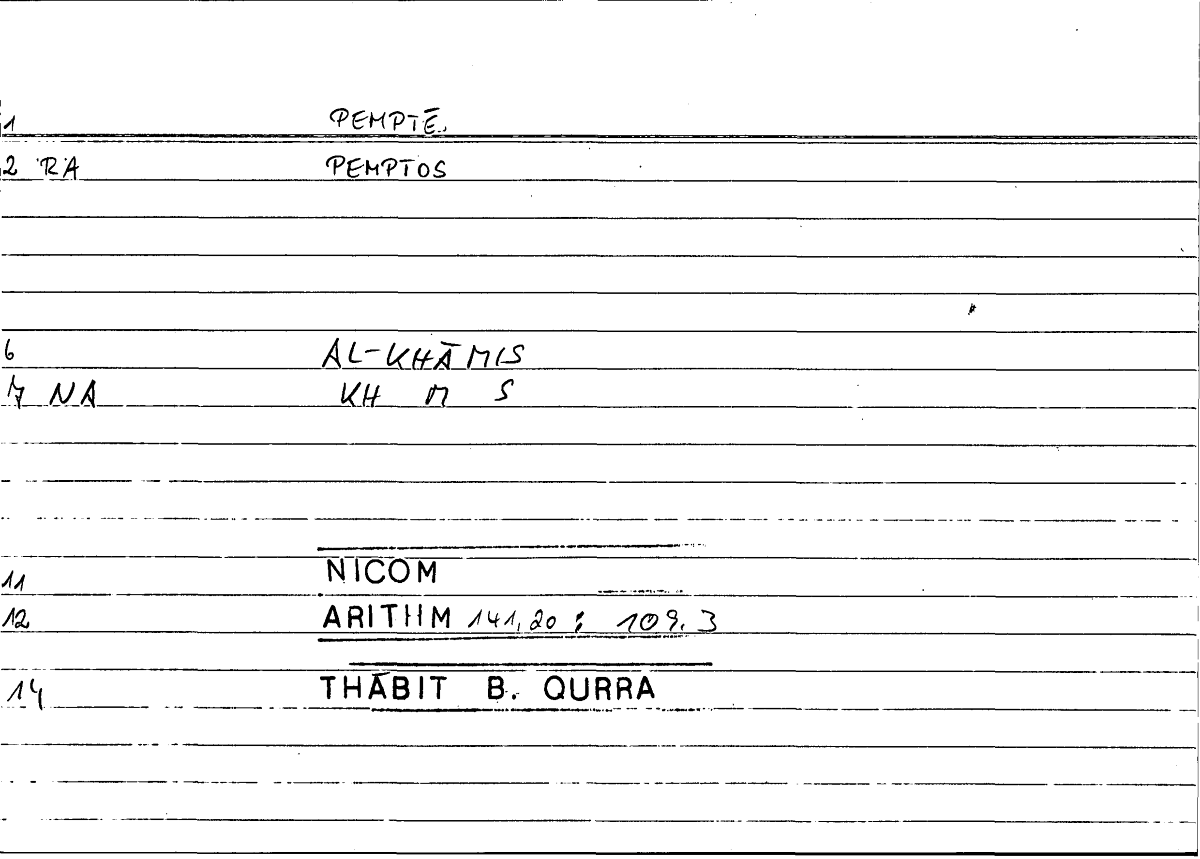 1 PEMPTĒ.
2 RA PEMPTOS
6 AL-KHĀMIS
7 NA KH M S
11 NICOM
12 ARITHM 141,20 : 109.3
14 THĀBIT B. QURRA